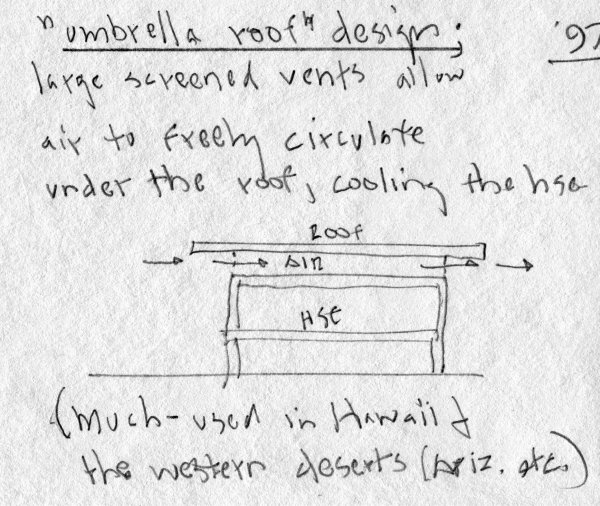 "umbrella roof" design:
'97
large screened vents allow
air to freely circulate
under the roof, cooling the hse
ROOF
AIR
HSE
(much-used in Hawaii &
the western deserts (Ariz. etc.)